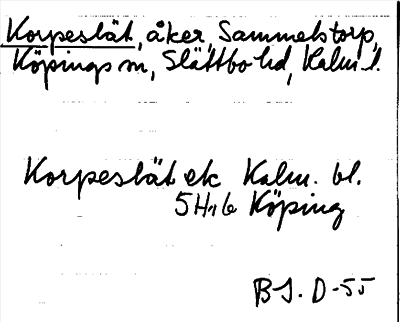 Korpeslät, åker, Sammelstorp,
Köpings sn, Slättbo hd, Kalm. l.
Korpeslät ek Kalm. bl.
5H:16 Köping
B-S. D-55